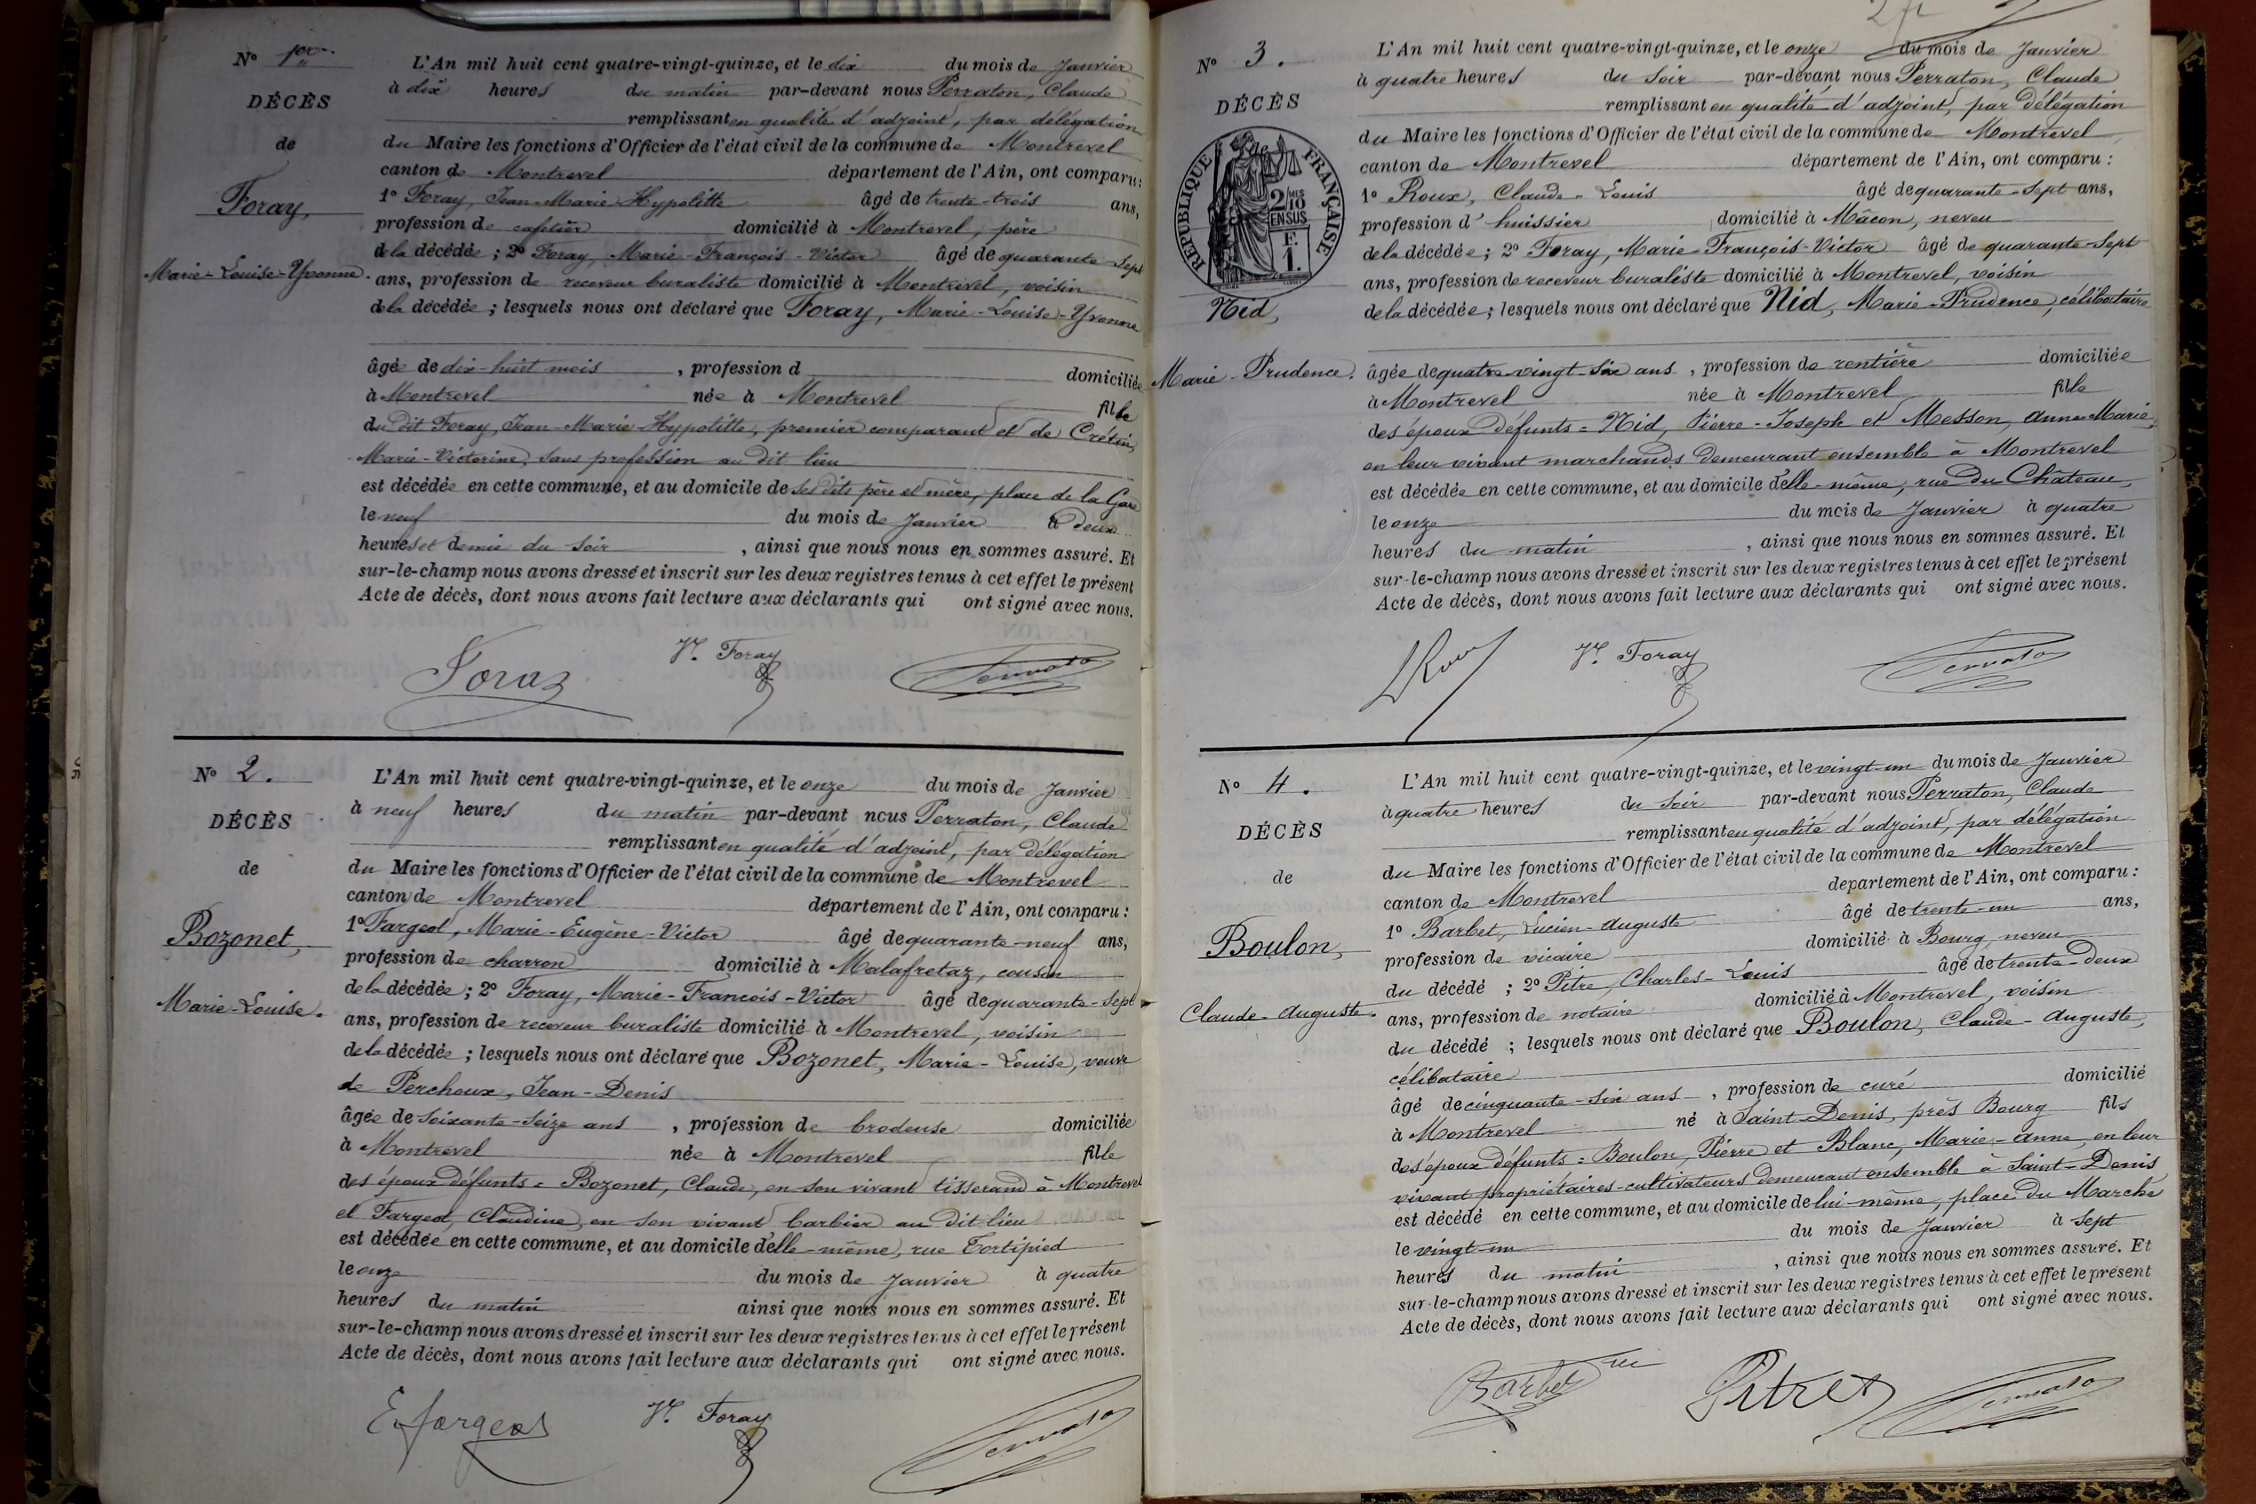 N° 1er
DÉCÈS
de
Foray,
Marie-Louise-Yvonne.
L'An mil huit cent quatre-vingt-quinze, et le dix du mois de Janvier
à dix heures du matin par-devant nous Perraton, Claude
remplissant en qualité d'adjoint, par délégation
du Maire les fonctions d'Officier de l'état civil de la commune de Montrevel
canton de Montrevel département de l'Ain, ont comparu:
1° Foray, Jean-Marie-Hypolitte âgé de trente-trois ans,
profession de cafetier domicilié à Montrevel, père
de la décédée; 2° Foray, Marie-François-Victor âgé de quarante-sept
ans, profession de receveur buraliste domicilié à Montrevel, voisin
de la décédée; lesquels nous ont déclaré que Foray, Marie-Louise-Yvonne
âgée de dix-huit mois, profession d domiciliée
à Montrevel née à Montrevel fille
du dit Foray, Jean-Marie-Hypolitte, premier comparant et de Crétin,
Marie-Victorine, sans profession au dit lieu
est décédée en cette commune, et au domicile de ses dits père et mère, place de la Gare
le neuf du mois de Janvier à deux
heures et demie du soir, ainsi que nous nous en sommes assuré. Et
sur-le-champ nous avons dressé et inscrit sur les deux registres tenus à cet effet le présent
Acte de décès, dont nous avons fait lecture aux déclarants qui ont signé avec nous.
Foray Vr. Foray Perraton
N° 2.
DÉCÈS
de
Bozonet,
Marie-Louise.
L'An mil huit cent quatre-vingt-quinze, et le onze du mois de Janvier
à neuf heures du matin par-devant nous Perraton, Claude
remplissant en qualité d'adjoint, par délégation
du Maire les fonctions d'Officier de l'état civil de la commune de Montrevel
canton de Montrevel département de l'Ain, ont comparu:
1° Fargeot, Marie-Eugène-Victor âgé de quarante-neuf ans,
profession de charron domicilié à Malafretaz, cousin
de la décédée; 2° Foray, Marie-François-Victor âgé de quarante-sept
ans, profession de receveur buraliste domicilié à Montrevel, voisin
de la décédée; lesquels nous ont déclaré que Bozonet, Marie-Louise, veuve
de Percheux, Jean-Denis
âgée de soixante-seize ans, profession de brodeuse domiciliée
à Montrevel née à Montrevel fille
des époux défunts = Bozonet, Claude, en son vivant tisserand à Montrevel
et Fargeot, Claudine, en son vivant barbier au dit lieu
est décédée en cette commune, et au domicile d'elle-même, rue Tortipied
le onze du mois de Janvier à quatre
heures du matin ainsi que nous nous en sommes assuré. Et
sur-le-champ nous avons dressé et inscrit sur les deux registres tenus à cet effet le présent
Acte de décès, dont nous avons fait lecture aux déclarants qui ont signé avec nous.
E fargeot Vr. Foray Perraton
N° 3.
DÉCÈS
de
RÉPUBLIQUE FRANÇAISE
2/10MES
EN SUS
F.
1.
Nid,
Marie-Prudence.
L'An mil huit cent quatre-vingt-quinze, et le onze du mois de Janvier
à quatre heures du soir par-devant nous Perraton, Claude
remplissant en qualité d'adjoint, par délégation
du Maire les fonctions d'Officier de l'état civil de la commune de Montrevel
canton de Montrevel département de l'Ain, ont comparu:
1° Roux, Claude-Louis âgé de quarante-sept ans,
profession d'huissier domicilié à Mâcon, neveu
de la décédée; 2° Foray, Marie-François-Victor âgé de quarante-sept
ans, profession de receveur buraliste domicilié à Montrevel, voisin
de la décédée; lesquels nous ont déclaré que Nid, Marie-Prudence, célibataire
âgée de quatre-vingt-six ans, profession de rentière domiciliée
à Montrevel née à Montrevel fille
des époux défunts = Nid, Pierre-Joseph et Messon, Anne-Marie,
en leur vivant marchands demeurant ensemble à Montrevel
est décédée en cette commune, et au domicile d'elle-même, rue du Château,
le onze du mois de Janvier à quatre
heures du matin, ainsi que nous nous en sommes assuré. Et
sur-le-champ nous avons dressé et inscrit sur les deux registres tenus à cet effet le présent
Acte de décès, dont nous avons fait lecture aux déclarants qui ont signé avec nous.
LRoux Vr. Foray Perraton
N° 4.
DÉCÈS
de
Boulon,
Claude-Auguste.
L'An mil huit cent quatre-vingt-quinze, et le vingt-un du mois de Janvier
à quatre heures du soir par-devant nous Perraton, Claude
remplissant en qualité d'adjoint, par délégation
du Maire les fonctions d'Officier de l'état civil de la commune de Montrevel
canton de Montrevel département de l'Ain, ont comparu:
1° Barbet, Lucien-Auguste âgé de trente-un ans,
profession de vicaire domicilié à Bourg, neveu
du décédé; 2° Pitre, Charles-Louis âgé de trente-deux
ans, profession de notaire domicilié à Montrevel, voisin
du décédé; lesquels nous ont déclaré que Boulon, Claude-Auguste,
célibataire
âgé de cinquante-six ans, profession de curé domicilié
à Montrevel né à Saint-Denis, près Bourg fils
des époux défunts = Boulon, Pierre et Blanc, Marie-Anne, en leur
vivant propriétaires-cultivateurs demeurant ensemble à Saint-Denis
est décédé en cette commune, et au domicile de lui-même, place du Marché
le vingt-un du mois de Janvier à sept
heures du matin, ainsi que nous nous en sommes assuré. Et
sur-le-champ nous avons dressé et inscrit sur les deux registres tenus à cet effet le présent
Acte de décès, dont nous avons fait lecture aux déclarants qui ont signé avec nous.
Barbet vic Pitre Perraton